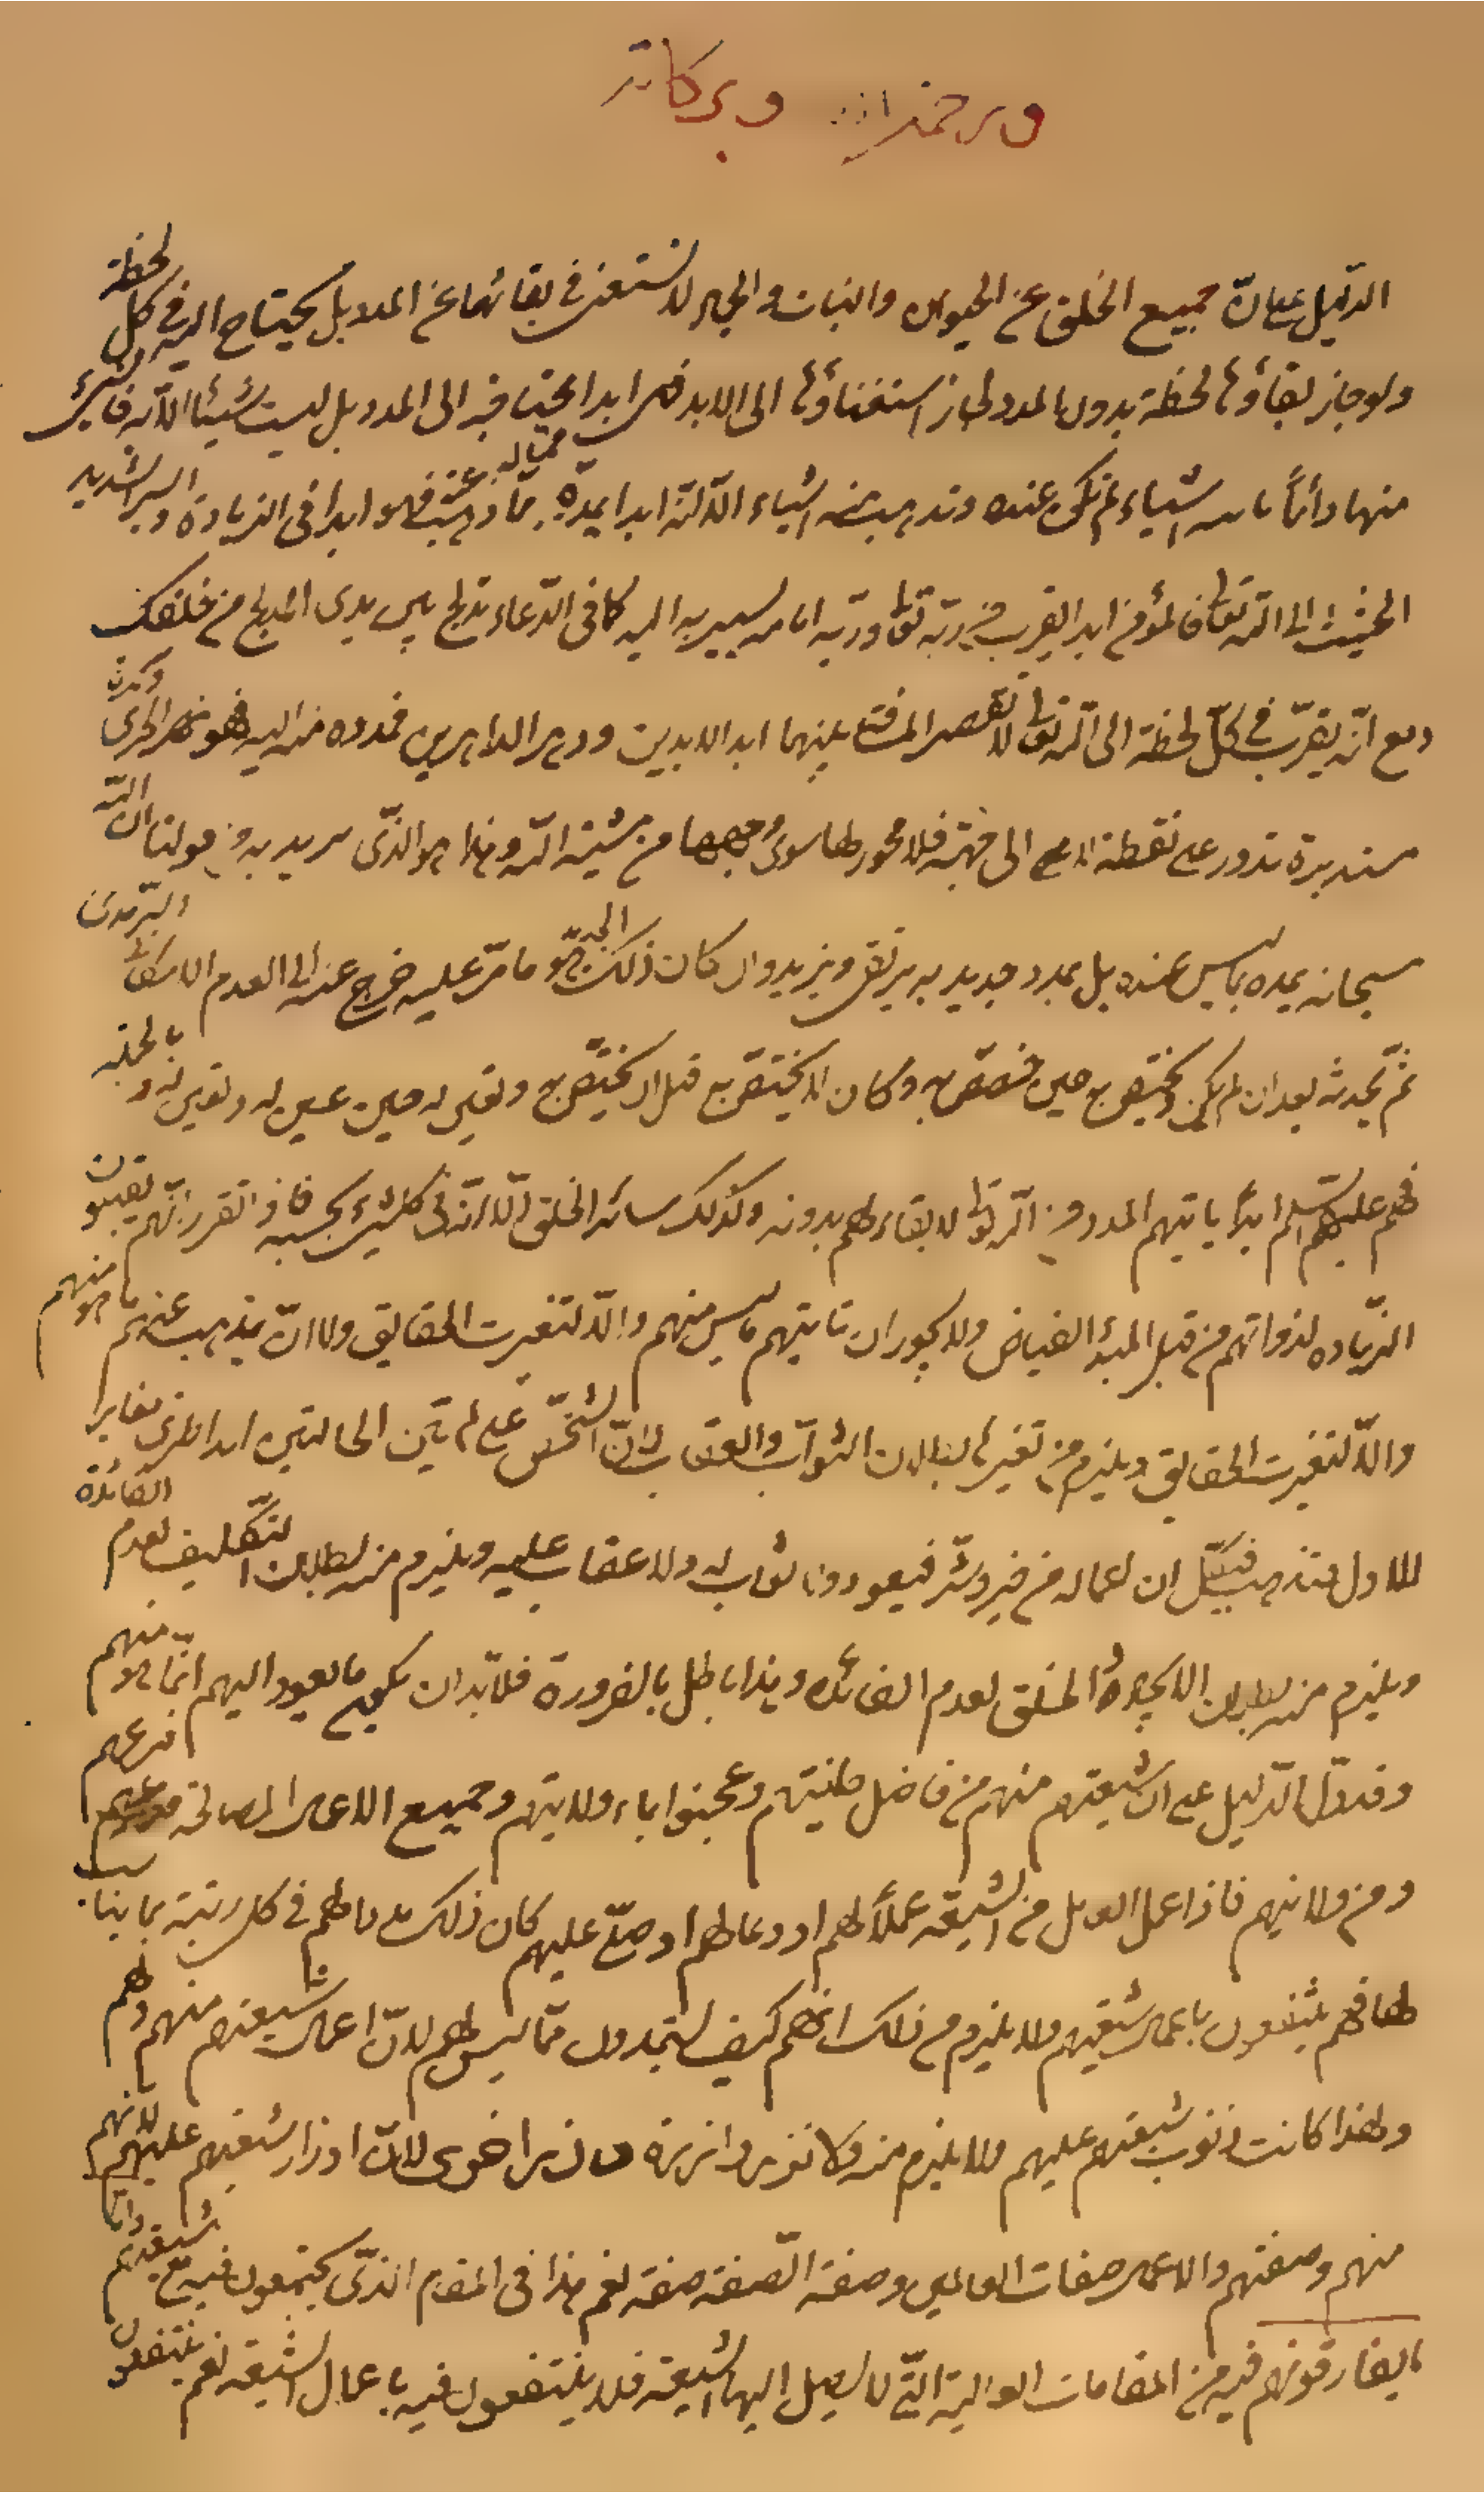 ورحمة الله وبركاته
الدليل على ان جميع الخلق من الحيوان والنبات والجماد لا تستغنى فى بقائها عن المدد بل يحتاج اليه فى كل لحظة
ولو جاز بقاؤها لحظة بدون المدد لجاز استغناؤها الى الابد فهى ابدا محتاجة الى المدد بل ليست شيئا الا به
منها دائما اشياء لم تكن عنده وتذهب منه اشياء الا انه ابدا يمده مما ذهب عنه فهو ابدا فى الزيادة والسير الشديد
الحثيث الى الله تعالى فالمؤمن ابدا يقرب من ربه تعالى وربه امامه يسير به اليه كما فى الدعاء تدلج بين يدى المدلج من خلقك
ومع انه يقرب فى كل لحظة الى الله تعالى لا تقصر المسافة بينهما ابد الابدين ودهر الداهرين فمدده منه اليه فهو نهر يجرى وكرة
مستديرة تدور على نقطة لا الى جهة فلا محور لها سوى وجهها من مشية الله وهذا هو الذى نريد به من قولنا ان الله
سبحانه يمده بما ليس عنده بل بمدد جديد به يرتقى ويزيد وان كان ذلك الجديد هو مما مر عليه خرج عنه الى العدم الامكانى
ثم يحدثه بعد ان لم يكن يختص به حين خصص به وكان لا يختص به قبل ان يختص به وتعين له حين عين له وبالجملة
فهم عليهم السلام ابدا ياتيهم المدد من الله تعالى لا بقاء لهم بدونه وكذلك سائر الخلق الا انه فى كل شىء بحسبه فاذا تقرر انهم يقبلون
الزيادة لذواتهم من قبل المبدء الفياض ولا يجوز ان تاتيهم ما ليس منهم والا لتغيرت الحقايق ولا ان يذهب عنهم ما هو منهم
والا لتغيرت الحقايق ويلزم من تغيرها بطلان الثواب والعقاب لان الشخص على احد الحالتين ابدا طرى مغاير
للاول فتذهب قبل ان اعماله من خير وشر فيعود ولا ثواب له ولا عقاب عليه ويلزم منه بطلان التكليف لعدم الفائدة
ويلزم منه بطلان الايجاد والخلق لعدم الفائدة وهذا باطل بالضرورة فلابد ان يكون ما يعود اليهم انما هو منهم
وقد دل الدليل على ان شيعتهم منهم من فاضل طينتهم وعجنوا بماء ولايتهم وجميع الاعمال الصالحة فرعهم
ومن ولايتهم فاذا عمل العامل من الشيعة عملا لهم او دعا لهم او صلى عليهم كان ذلك مددا لهم فى كل رتبة بما يناسب
لها فهم ينتفعون باعمال شيعتهم ولا يلزم من ذلك انهم كيف يستمدون مما ليس لهم لان اعمال شيعتهم منهم ولهم
ولهذا كانت ذنوب شيعتهم عليهم ولا يلزم منه ولا تزر وازرة وزر اخرى لان اوزار شيعتهم عليهم لانهم
منهم وصفتهم والاعمال صفات العاملين وصفة الصفة صفة نعم هذا فى المقام الذى يجتمعون فيه مع شيعتهم واما
ما يفارقونهم فيه من المقامات العالية التى لا يصل اليها الشيعة فلا ينتفعون فيه باعمال الشيعة نعم ينتفعون